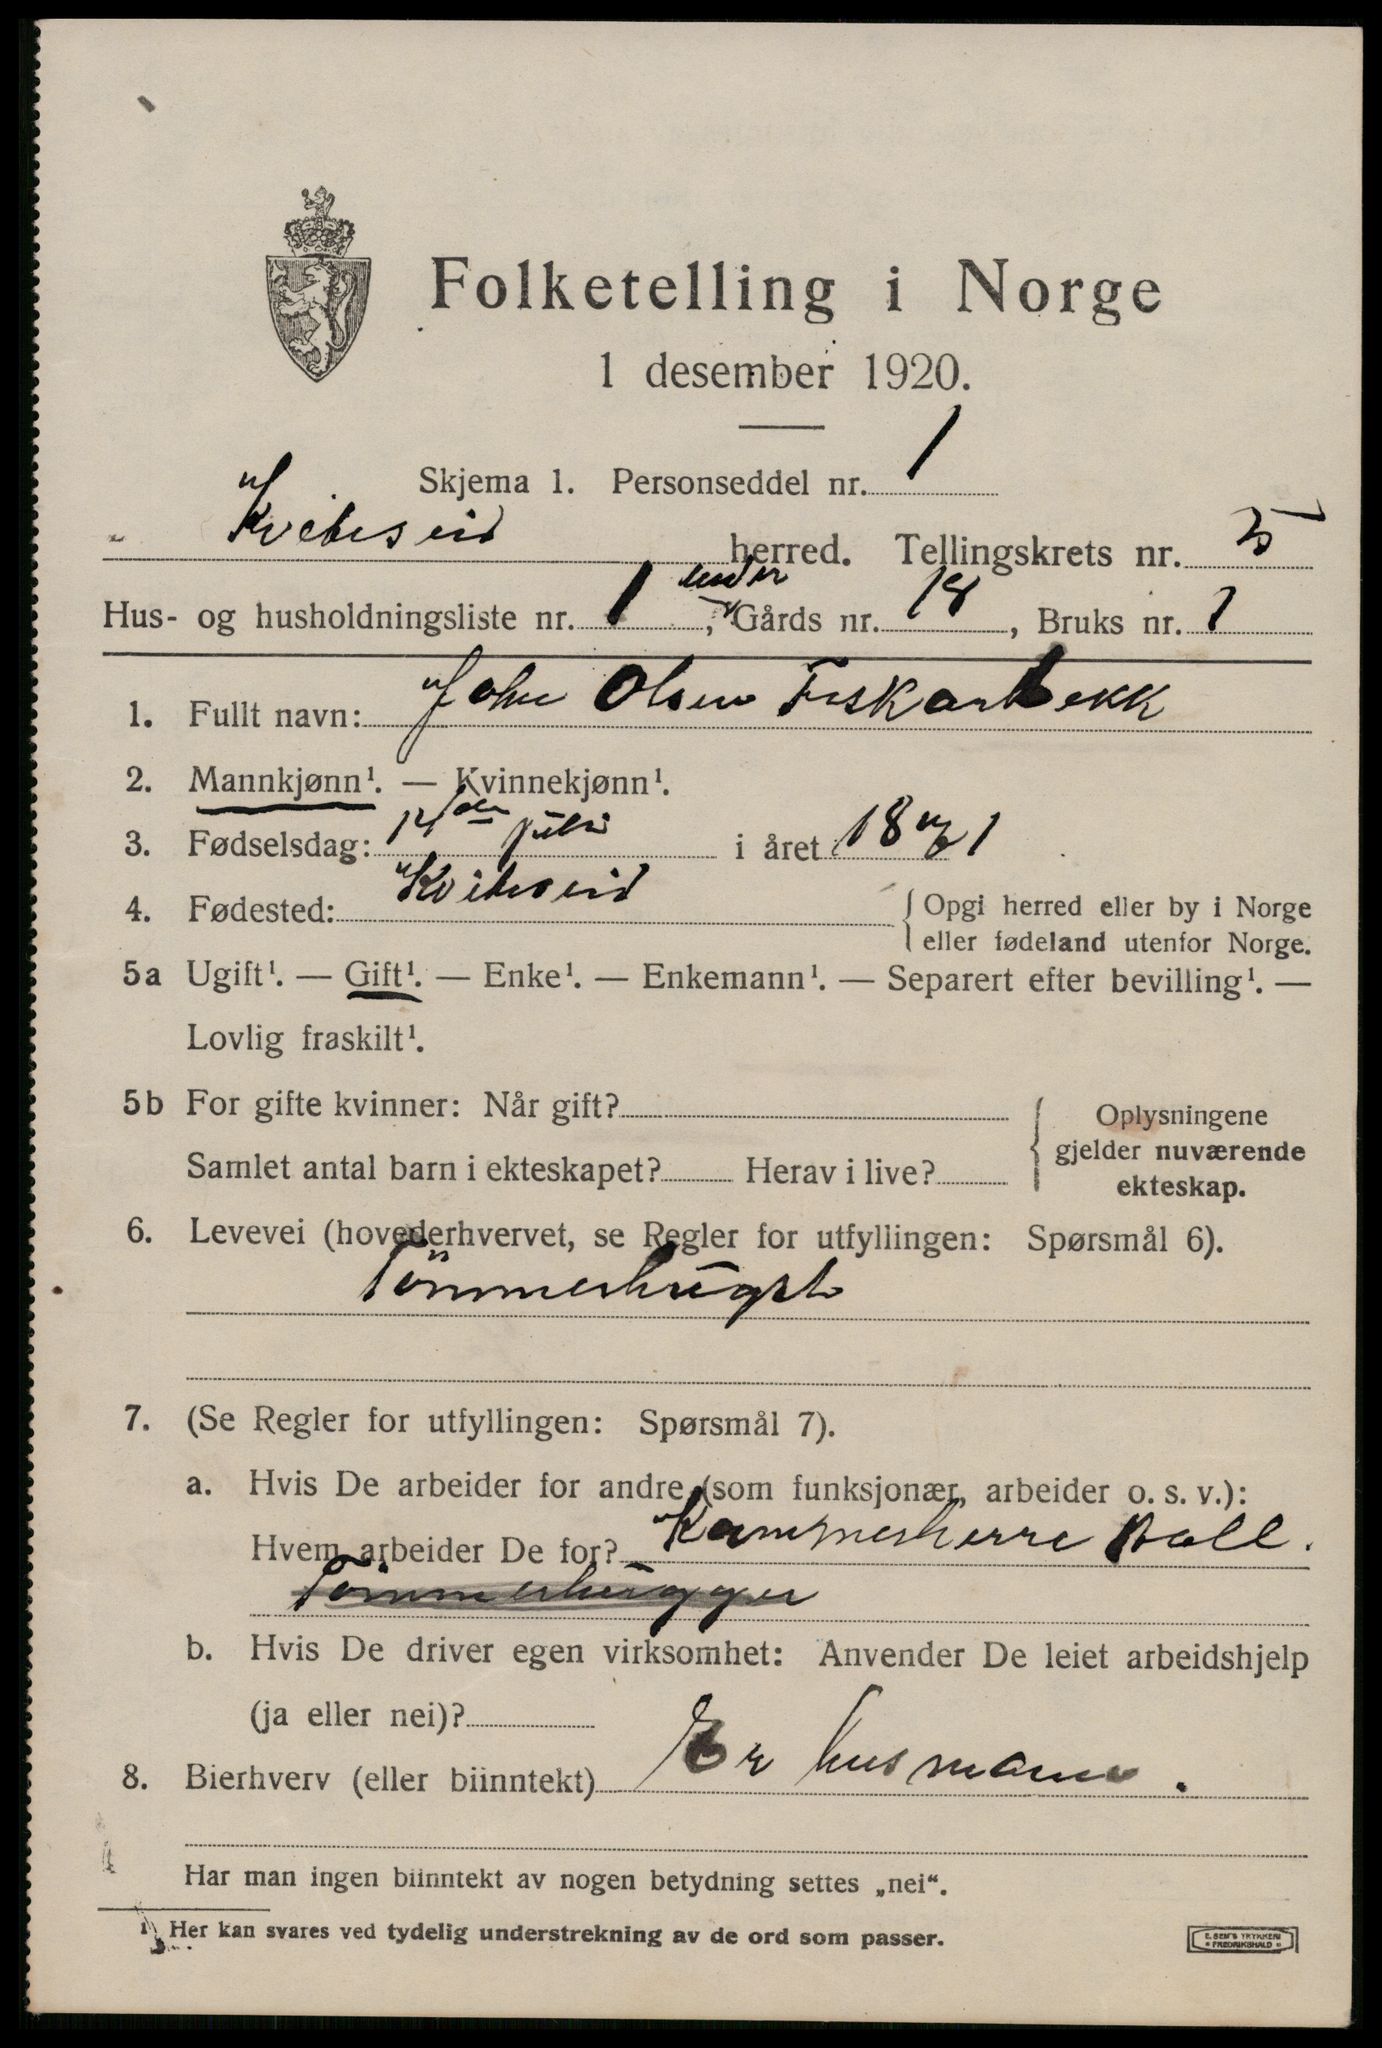 Folketelling i Norge
1 desember 1920.
Skjema 1. Personseddel nr. 1
Kviteseid herred. Tellingskrets nr. 5
Hus- og husholdningsliste nr. 1, under Gårds nr. 18, Bruks nr. 1
1. Fullt navn: John Olsen Fiskarbekk
2. Mannkjønn¹. — Kvinnekjønn¹.
3. Fødselsdag: 14de juli i året 1871
4. Fødested: Kviteseid { Opgi herred eller by i Norge
eller fødeland utenfor Norge.
5a Ugift¹. — Gift¹. — Enke¹. — Enkemann¹. — Separert efter bevilling¹. —
Lovlig fraskilt¹.
5b For gifte kvinner: Når gift? { Oplysningene
gjelder nuværende
Samlet antal barn i ekteskapet? Herav i live?
ekteskap.
6. Levevei (hovederhvervet, se Regler for utfyllingen: Spørsmål 6).
Tömmerhugst
7. (Se Regler for utfyllingen: Spørsmål 7).
a. Hvis De arbeider for andre (som funksjonær, arbeider o. s. v.):
Hvem arbeider De for? Kammerherre
Tömmerhugger
b. Hvis De driver egen virksomhet: Anvender De leiet arbeidshjelp
(ja eller nei)?
8. Bierhverv (eller biinntekt) Er husmann.
Har man ingen biinntekt av nogen betydning settes „nei“.
¹) Her kan svares ved tydelig understrekning av de ord som passer.
E. SEM'S TRYKKERI
FREDRIKSHALD